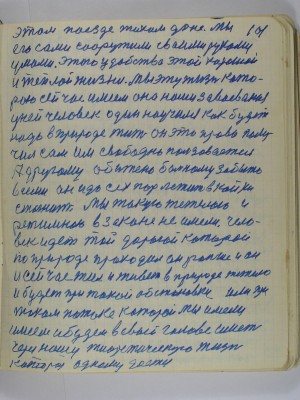 этом поезде таком доме. Мы 101
его сами соорудили своими руками
умами. Это удобства этой хорошей
и тёплой жизни. Мы эту жизнь кото-
рую сейчас имеем она нами завоевана
у ней человек один научил как будет
надо в природе жить он это право полу-
чил сам им свободно пользовается
А другому обычено больному забыть
всем он до сех пор лежит в койки
стонить Мы такую
в законе не имели. Чело-
век идет той дорогой которой
по природе проходил он раньше и он
и сейчас жил и живет в природе такою
и будет при такой обстановки или при
таком потоке которой мы имели
имеем и будем в своей голове иметь
через нашу теоретическую жизнь
которую одному дости